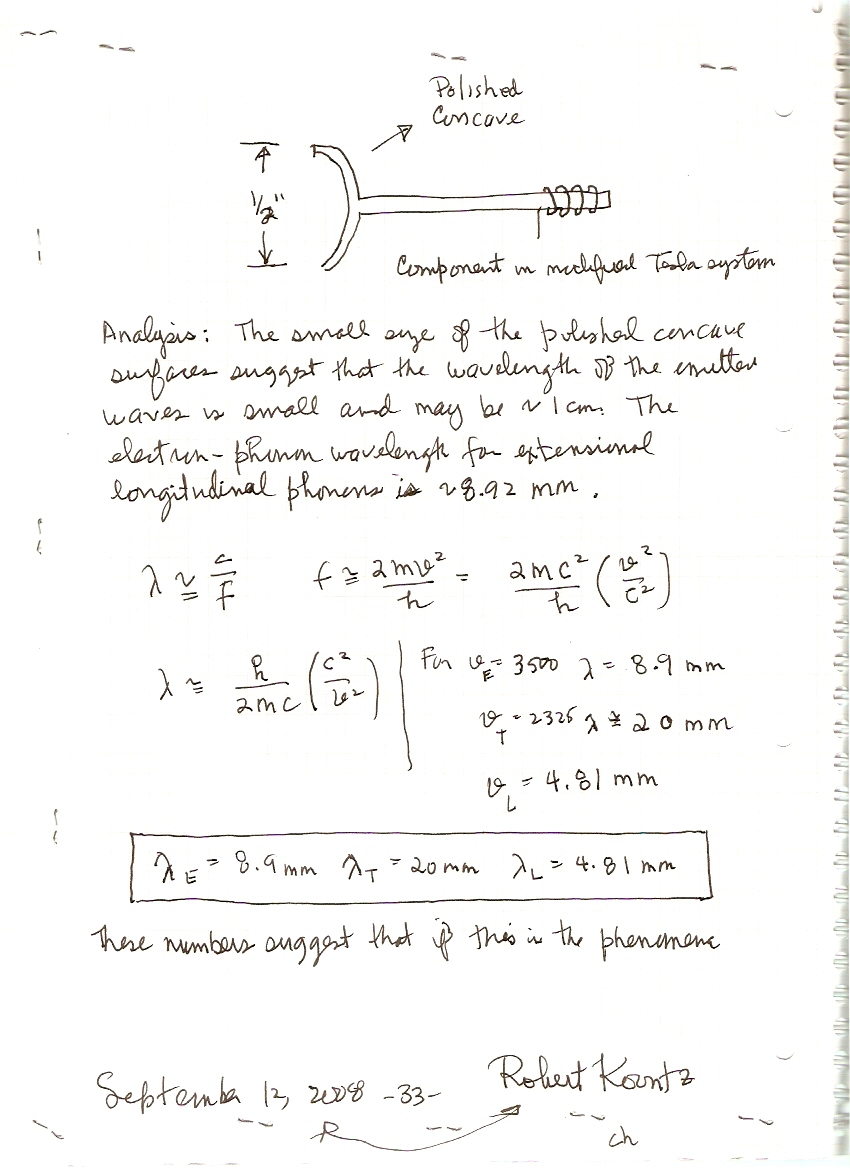 Polished
Concave
1/2"
Component in modified Tesla system
Analysis: The small size of the polished concave
surfaces suggest that the wavelength of the emitted
waves is small and may be ~ 1 cm. The
electron-phonon wavelength for extensional
longitudinal phonons is ~8.92 mm.
λ ≅ c/f f ≅ 2mv²/h = 2mc²/h (v²/c²)
λ ≅ h/2mc (c²/v²) For v_E = 3500 λ = 8.9 mm
v_T = 2325 λ ≅ 20 mm
v_L = 4.81 mm
λ_E = 8.9 mm λ_T = 20 mm λ_L = 4.81 mm
These numbers suggest that if this is the phenomena
September 12, 2008 -33- Robert Koontz
ch